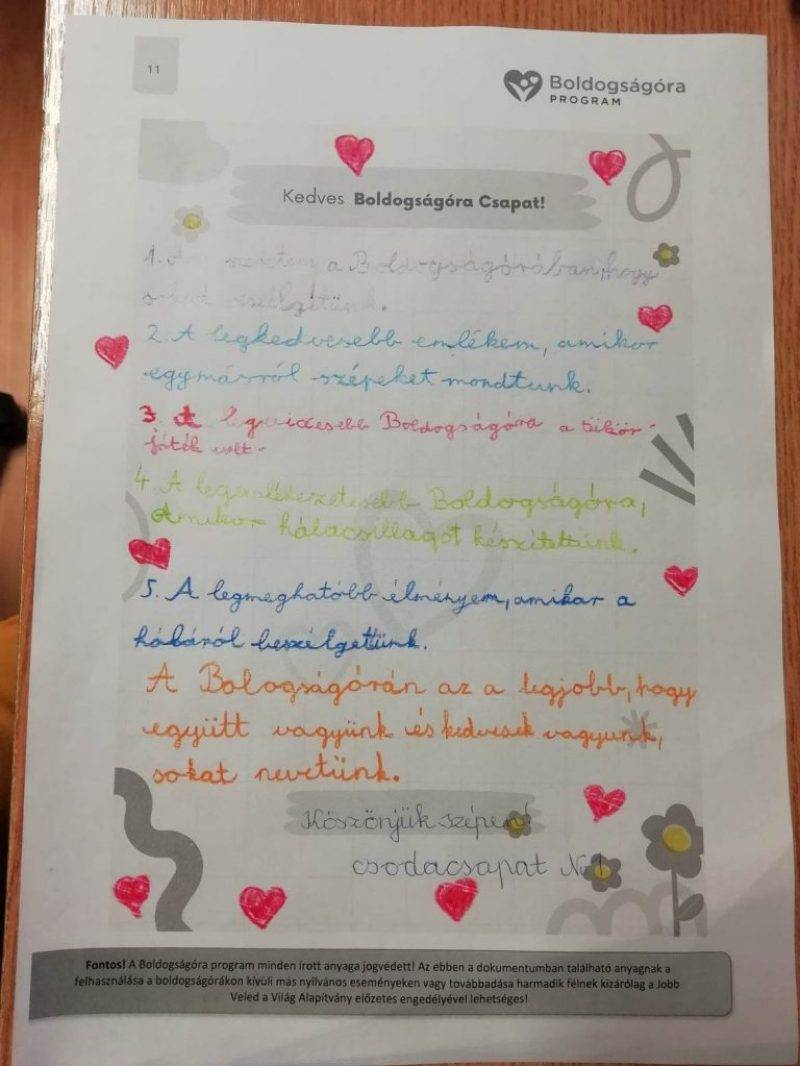 11
Boldogságóra
PROGRAM
Kedves Boldogságóra Csapat!
1. a Boldogságórában, hogy
2. A legkedvesebb emlékem, amikor
egymásról szépeket mondtunk.
3. A legviccesebb Boldogságóra a tükör-
játék volt.
4. A legemlékezetesebb Boldogságóra,
amikor hálacsillagot készítettünk.
5. A legmeghatóbb élményem, amikor a
háláról beszélgettünk.
A Bologságórán az a legjobb, hogy
együtt vagyünk és kedvesek vagyunk,
sokat nevetünk.
Köszönjük szépen!
csodacsapat No 1
Fontos! A Boldogságóra program minden írott anyaga jogvédett! Az ebben a dokumentumban található anyagnak a
felhasználása a boldogságórákon kívüli más nyilvános eseményeken vagy továbbadása harmadik félnek kizárólag a Jobb
Veled a Világ Alapítvány előzetes engedélyével lehetséges!